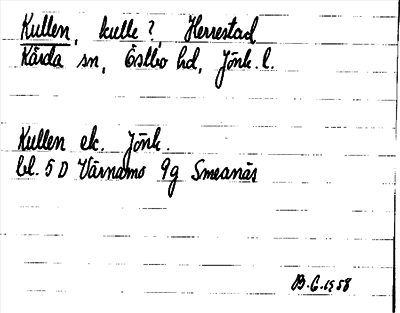 Kullen, kulle?, Herrestad
Kärda sn, Östbo hd, Jönk. l.
Kullen ek. Jönk.
bl. 5 D Värnamo 9g Smeanäs
B.G. 1958